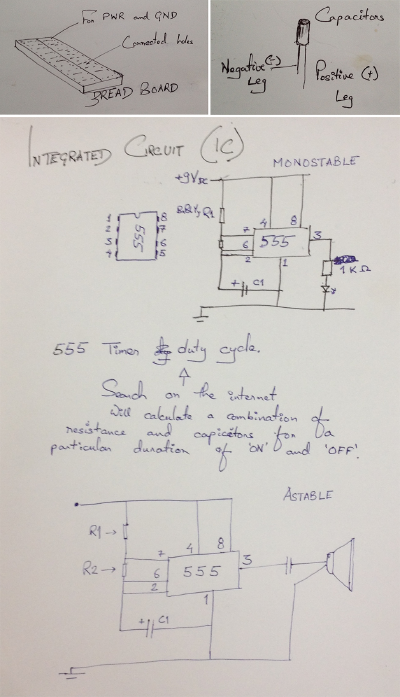 For PWR and GND
Connected holes
BREAD BOARD
Capacitors
Negative (-)
Leg
Positive (+)
Leg
INTEGRATED CIRCUIT (IC)
MONOSTABLE
+9VDC
R1
1 8
2 7
3 6
4 5
555
4 8
7
6
2
555
3
1
1KΩ
+ C1
555 Timer duty cycle.
Search on the internet
Will calculate a combination of
resistance and capicitors for a
particular duration of 'ON' and 'OFF'.
ASTABLE
R1
R2
4 8
7
6
2
555
3
1
+ C1